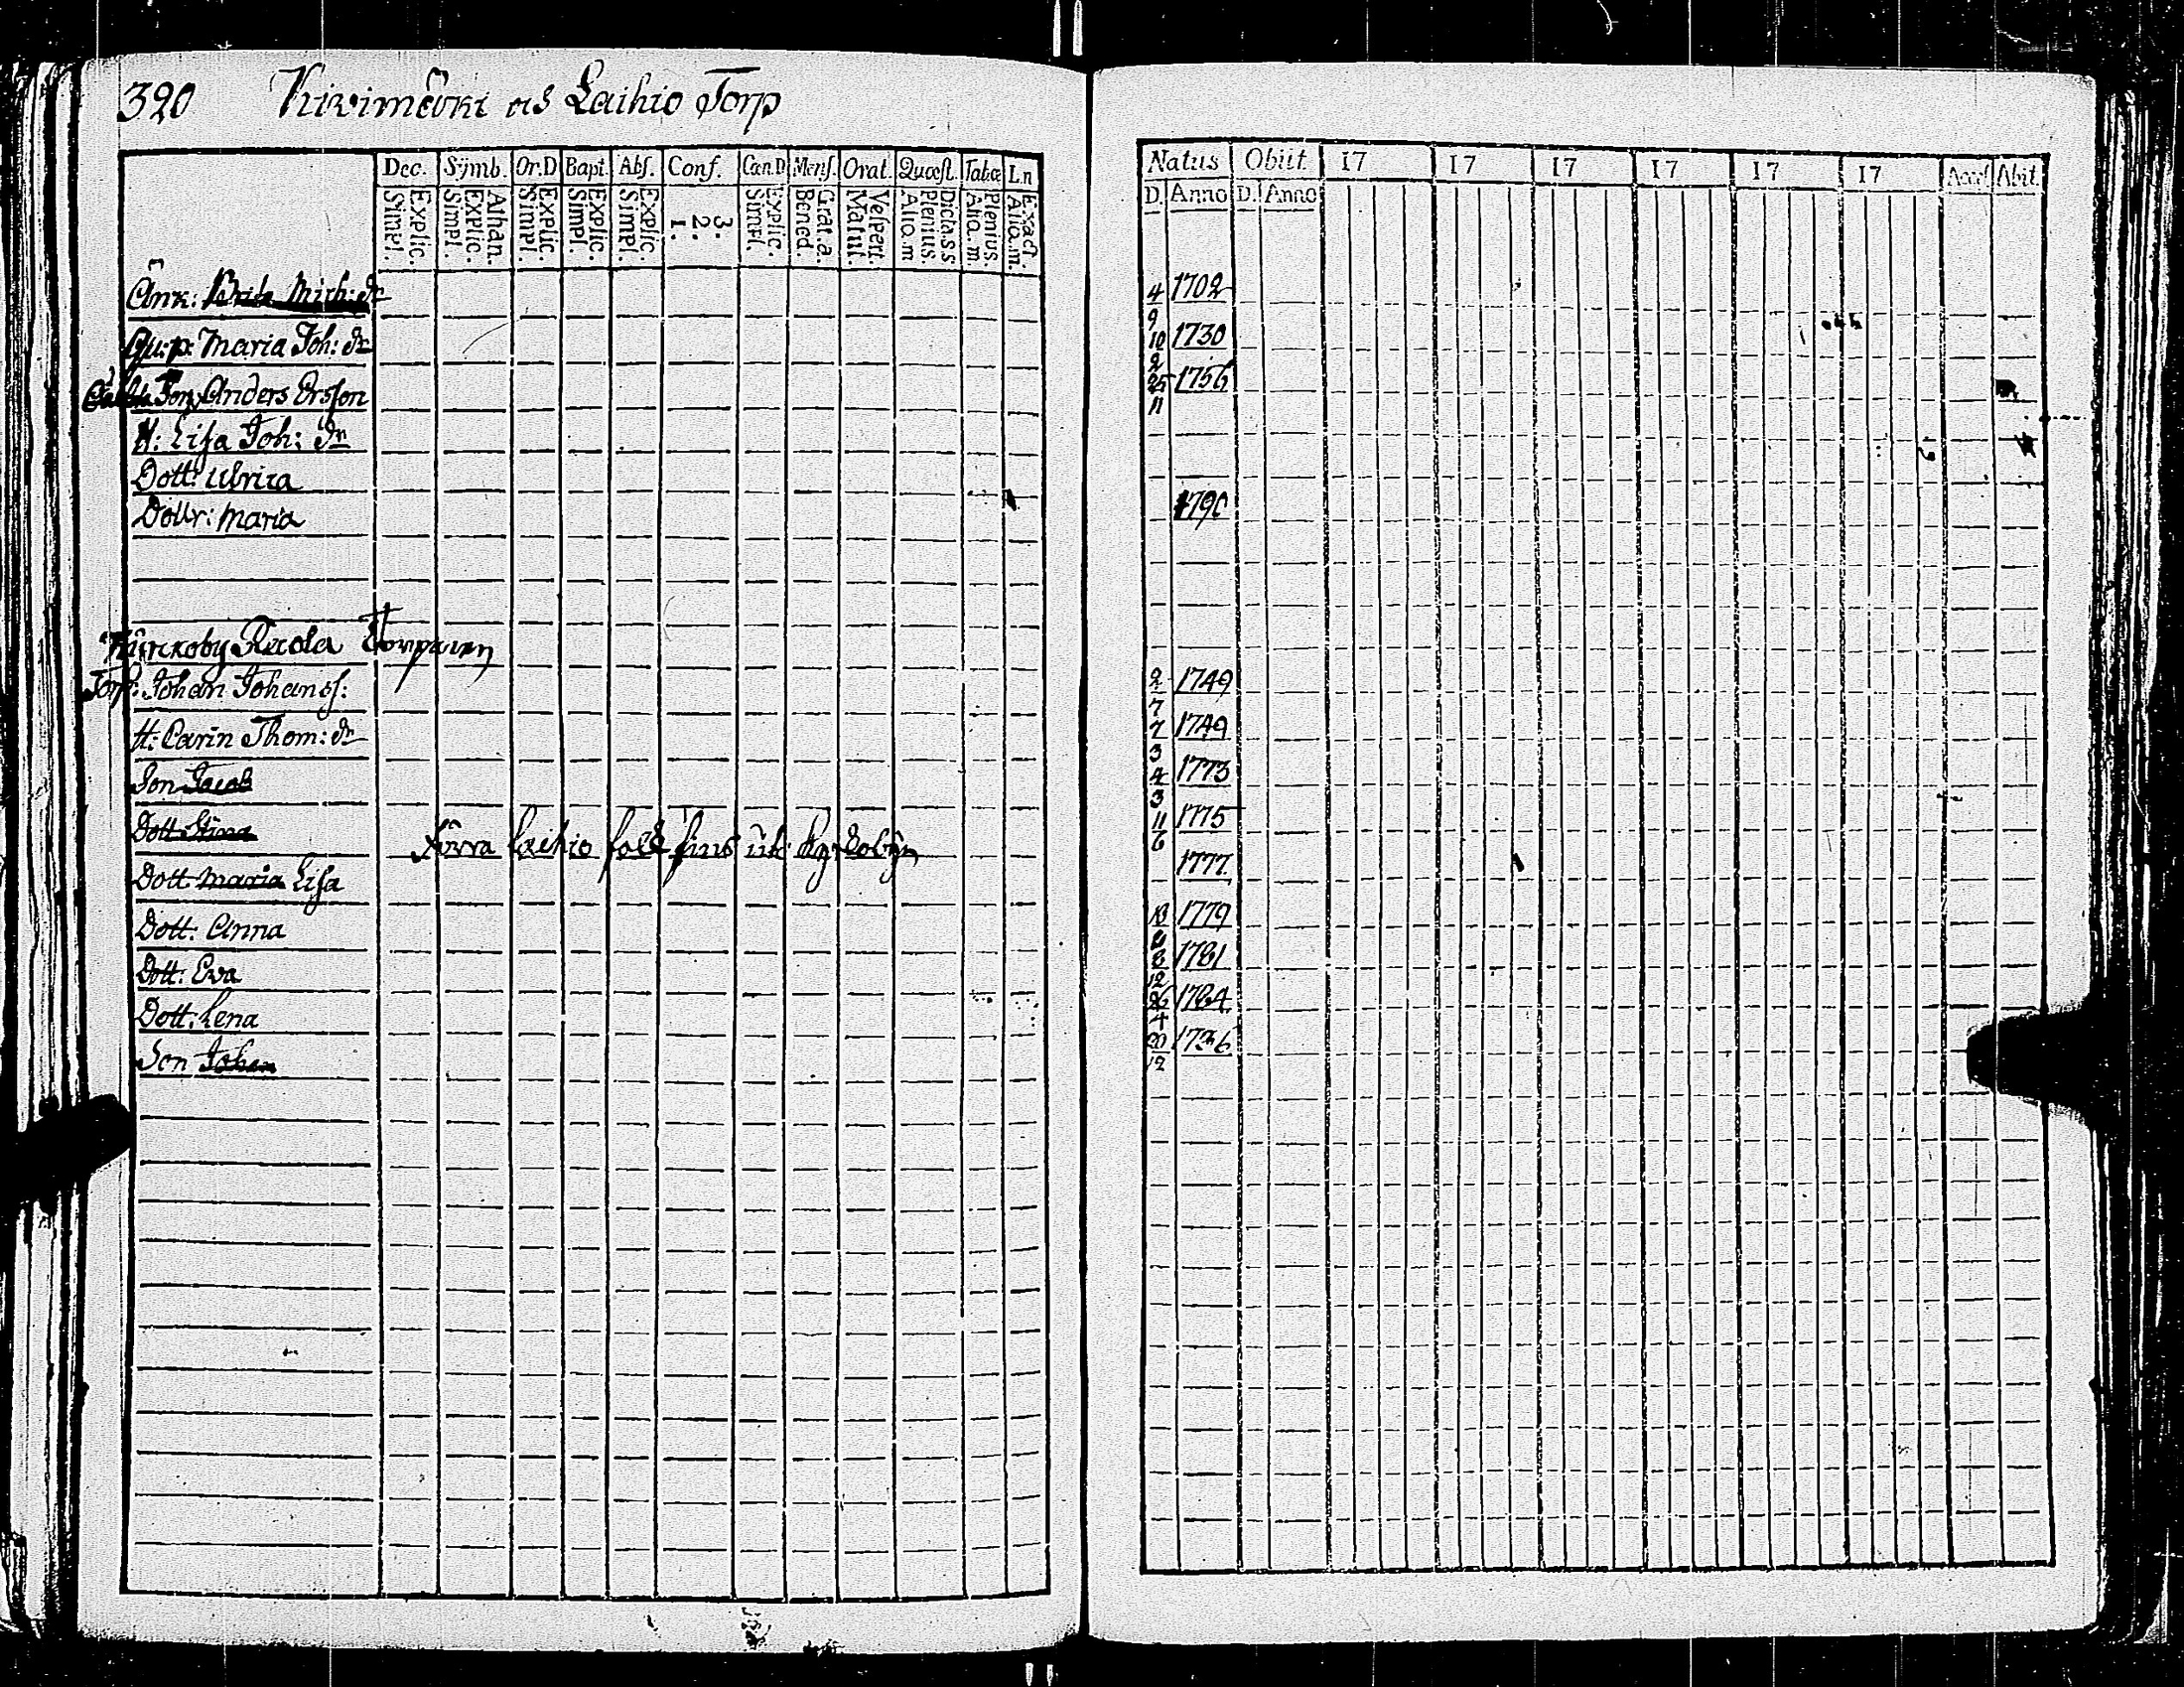 320 Kivimäki as Laihio Torp
Dec. Sijmb. Or.D Bapt. Abſ. Conf. Can.D Menſ. Orat. Quæſt. Tabæ Ln
Explic. Simpl. Athan. Explic. Simpl. Explic. Simpl. Explic. Simpl. Explic. Simpl. 3. 2. 1. Explic. Simpl. Grat. a. Bened. Veſpert. Matut. Dicta. s.s Plenius. Aliq. m Plenius. Aliq. m. Exact. Aliq. m.
Natus Obiit. 17 17 17 17 17 17 Acceſ Abit.
D. Anno D. Anno
Änk: Brita Mich: dr 4 9 1702
Maria Joh: dr 10 2 1730
Torp Anders Ersson 25 11 1756
H: Lisa Joh: dr
Dott: Ulrica
Dottr: Maria 1790
Torparen
Torp: Johan Johanss: 2 7 1749
H: Carin Thom: dr 7 3 1749
Son Jacob 4 3 1773
Dott Stina 11 6 1775
Laihio folk fins
Dott Maria Lisa 1777
Dott: Anna 1779
Dott: Eva 8 12 1781
Dott: Lena 26 4 1784
Son Johan 20 12 1786